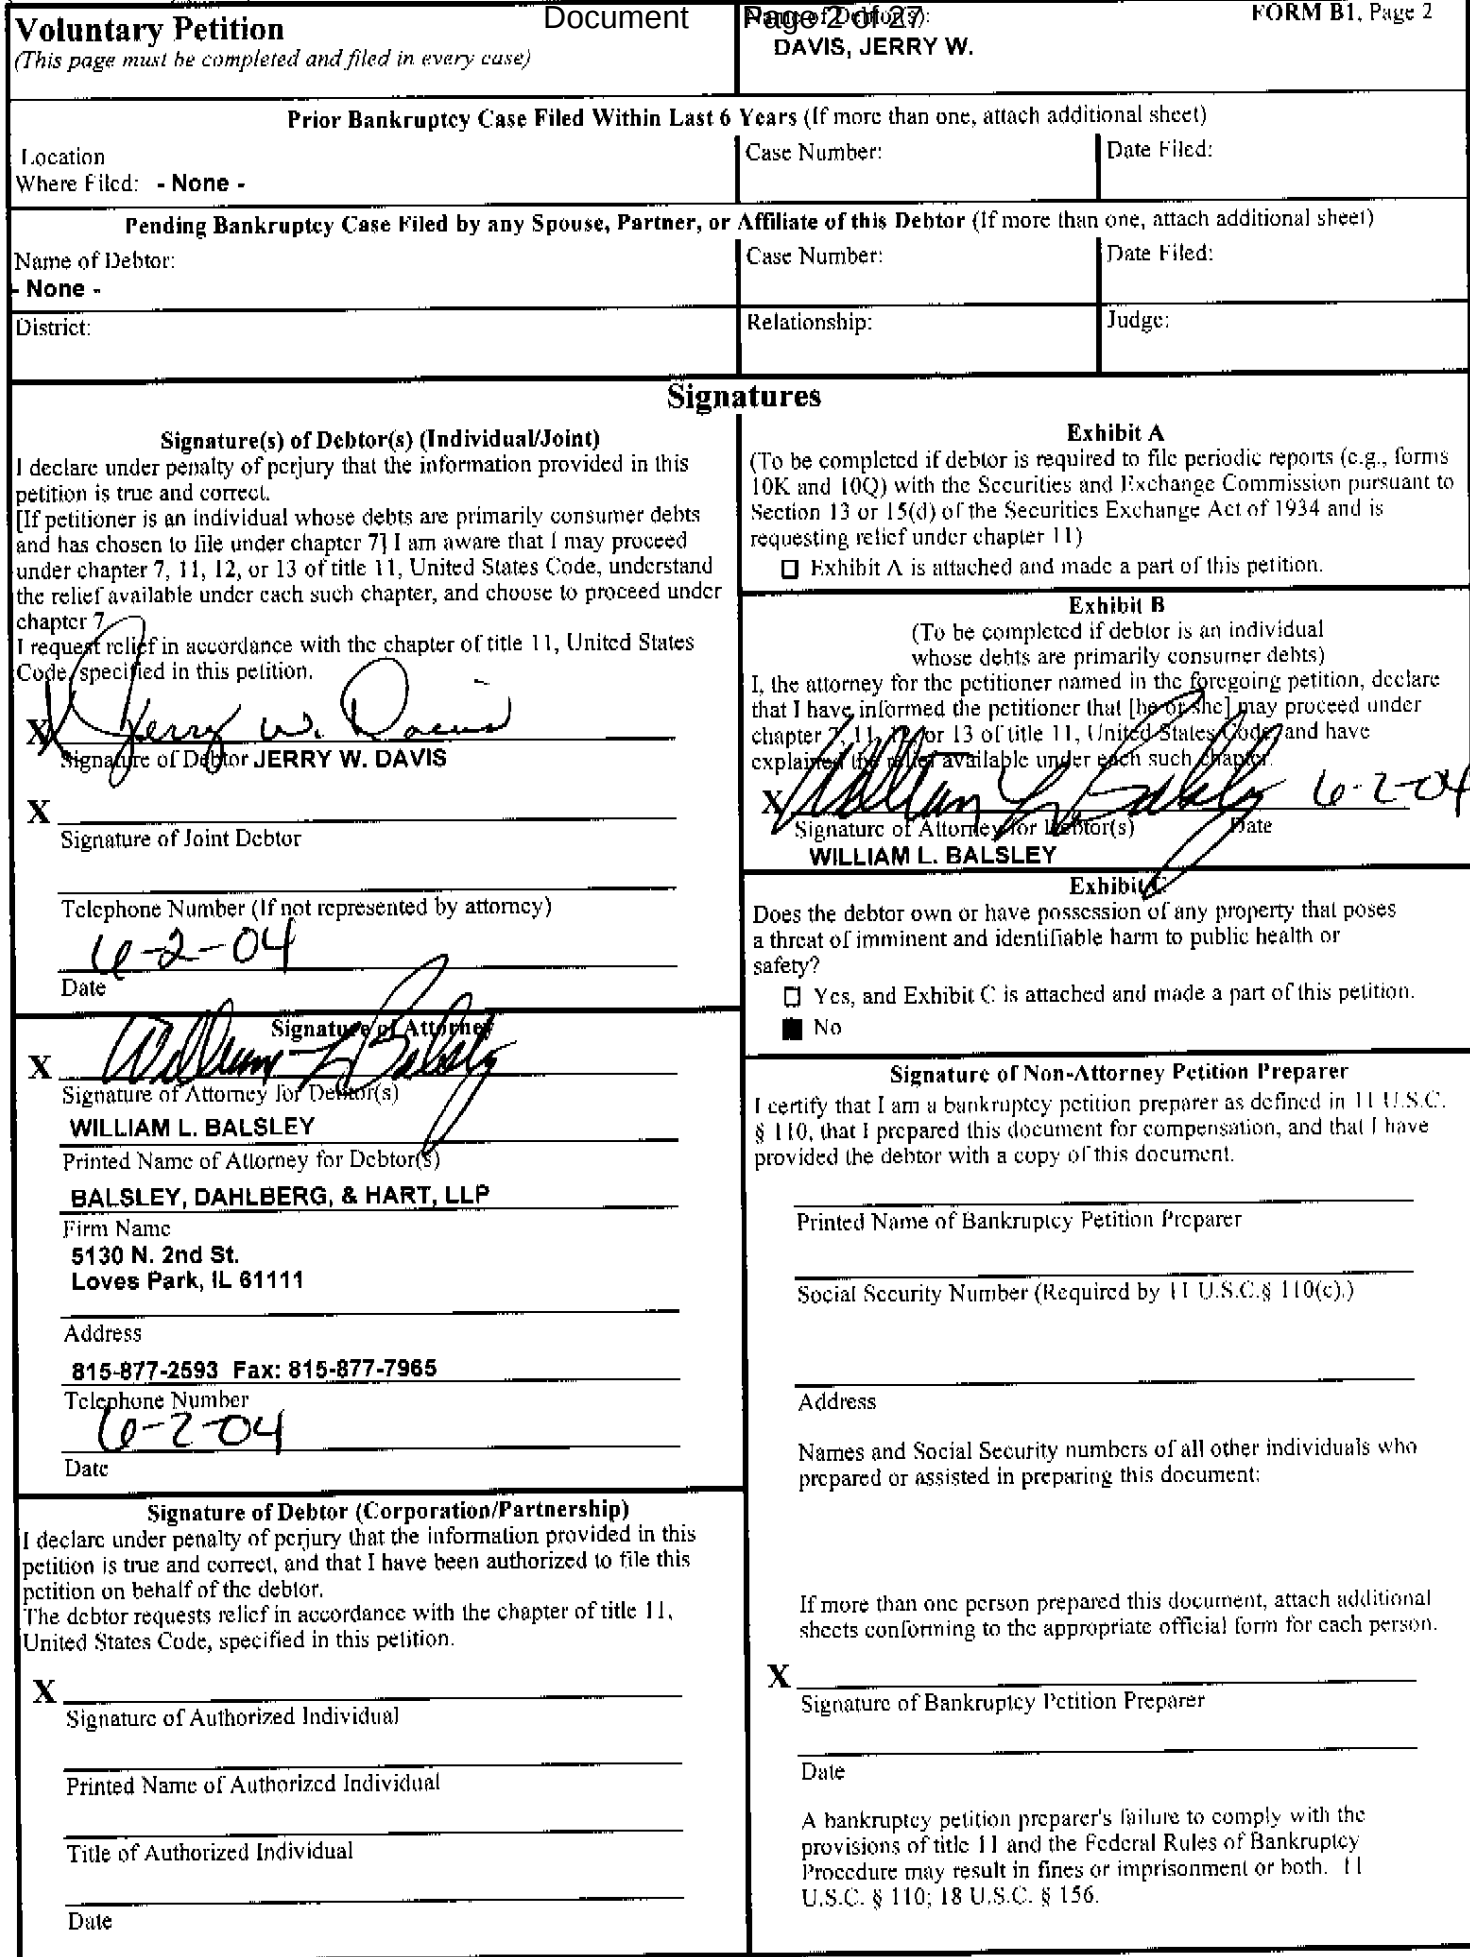 Document Page 2 of 27
Voluntary Petition
(This page must be completed and filed in every case)
Name of Debtor(s):
DAVIS, JERRY W.
FORM B1, Page 2
Prior Bankruptcy Case Filed Within Last 6 Years (If more than one, attach additional sheet)
Location
Where Filed: - None -
Case Number:
Date Filed:
Pending Bankruptcy Case Filed by any Spouse, Partner, or Affiliate of this Debtor (If more than one, attach additional sheet)
Name of Debtor:
- None -
Case Number:
Date Filed:
District:
Relationship:
Judge:
Signatures
Signature(s) of Debtor(s) (Individual/Joint)
I declare under penalty of perjury that the information provided in this
petition is true and correct.
[If petitioner is an individual whose debts are primarily consumer debts
and has chosen to file under chapter 7] I am aware that I may proceed
under chapter 7, 11, 12, or 13 of title 11, United States Code, understand
the relief available under each such chapter, and choose to proceed under
chapter 7.
I request relief in accordance with the chapter of title 11, United States
Code, specified in this petition.
X Jerry W. Davis
Signature of Debtor JERRY W. DAVIS
X
Signature of Joint Debtor
Telephone Number (If not represented by attorney)
6-2-04
Date
Signature of Attorney
X William L Balsley
Signature of Attorney for Debtor(s)
WILLIAM L. BALSLEY
Printed Name of Attorney for Debtor(s)
BALSLEY, DAHLBERG, & HART, LLP
Firm Name
5130 N. 2nd St.
Loves Park, IL 61111
Address
815-877-2593 Fax: 815-877-7965
Telephone Number
6-2-04
Date
Signature of Debtor (Corporation/Partnership)
I declare under penalty of perjury that the information provided in this
petition is true and correct, and that I have been authorized to file this
petition on behalf of the debtor.
The debtor requests relief in accordance with the chapter of title 11,
United States Code, specified in this petition.
X
Signature of Authorized Individual
Printed Name of Authorized Individual
Title of Authorized Individual
Date
Exhibit A
(To be completed if debtor is required to file periodic reports (e.g., forms
10K and 10Q) with the Securities and Exchange Commission pursuant to
Section 13 or 15(d) of the Securities Exchange Act of 1934 and is
requesting relief under chapter 11)
☐ Exhibit A is attached and made a part of this petition.
Exhibit B
(To be completed if debtor is an individual
whose debts are primarily consumer debts)
I, the attorney for the petitioner named in the foregoing petition, declare
that I have informed the petitioner that [he or she] may proceed under
chapter 7, 11, 12, or 13 of title 11, United States Code, and have
explained the relief available under each such chapter.
X William L Balsley 6-2-04
Signature of Attorney for Debtor(s) Date
WILLIAM L. BALSLEY
Exhibit C
Does the debtor own or have possession of any property that poses
a threat of imminent and identifiable harm to public health or
safety?
☐ Yes, and Exhibit C is attached and made a part of this petition.
■ No
Signature of Non-Attorney Petition Preparer
I certify that I am a bankruptcy petition preparer as defined in 11 U.S.C.
§ 110, that I prepared this document for compensation, and that I have
provided the debtor with a copy of this document.
Printed Name of Bankruptcy Petition Preparer
Social Security Number (Required by 11 U.S.C.§ 110(c).)
Address
Names and Social Security numbers of all other individuals who
prepared or assisted in preparing this document:
If more than one person prepared this document, attach additional
sheets conforming to the appropriate official form for each person.
X
Signature of Bankruptcy Petition Preparer
Date
A bankruptcy petition preparer's failure to comply with the
provisions of title 11 and the Federal Rules of Bankruptcy
Procedure may result in fines or imprisonment or both. 11
U.S.C. § 110; 18 U.S.C. § 156.